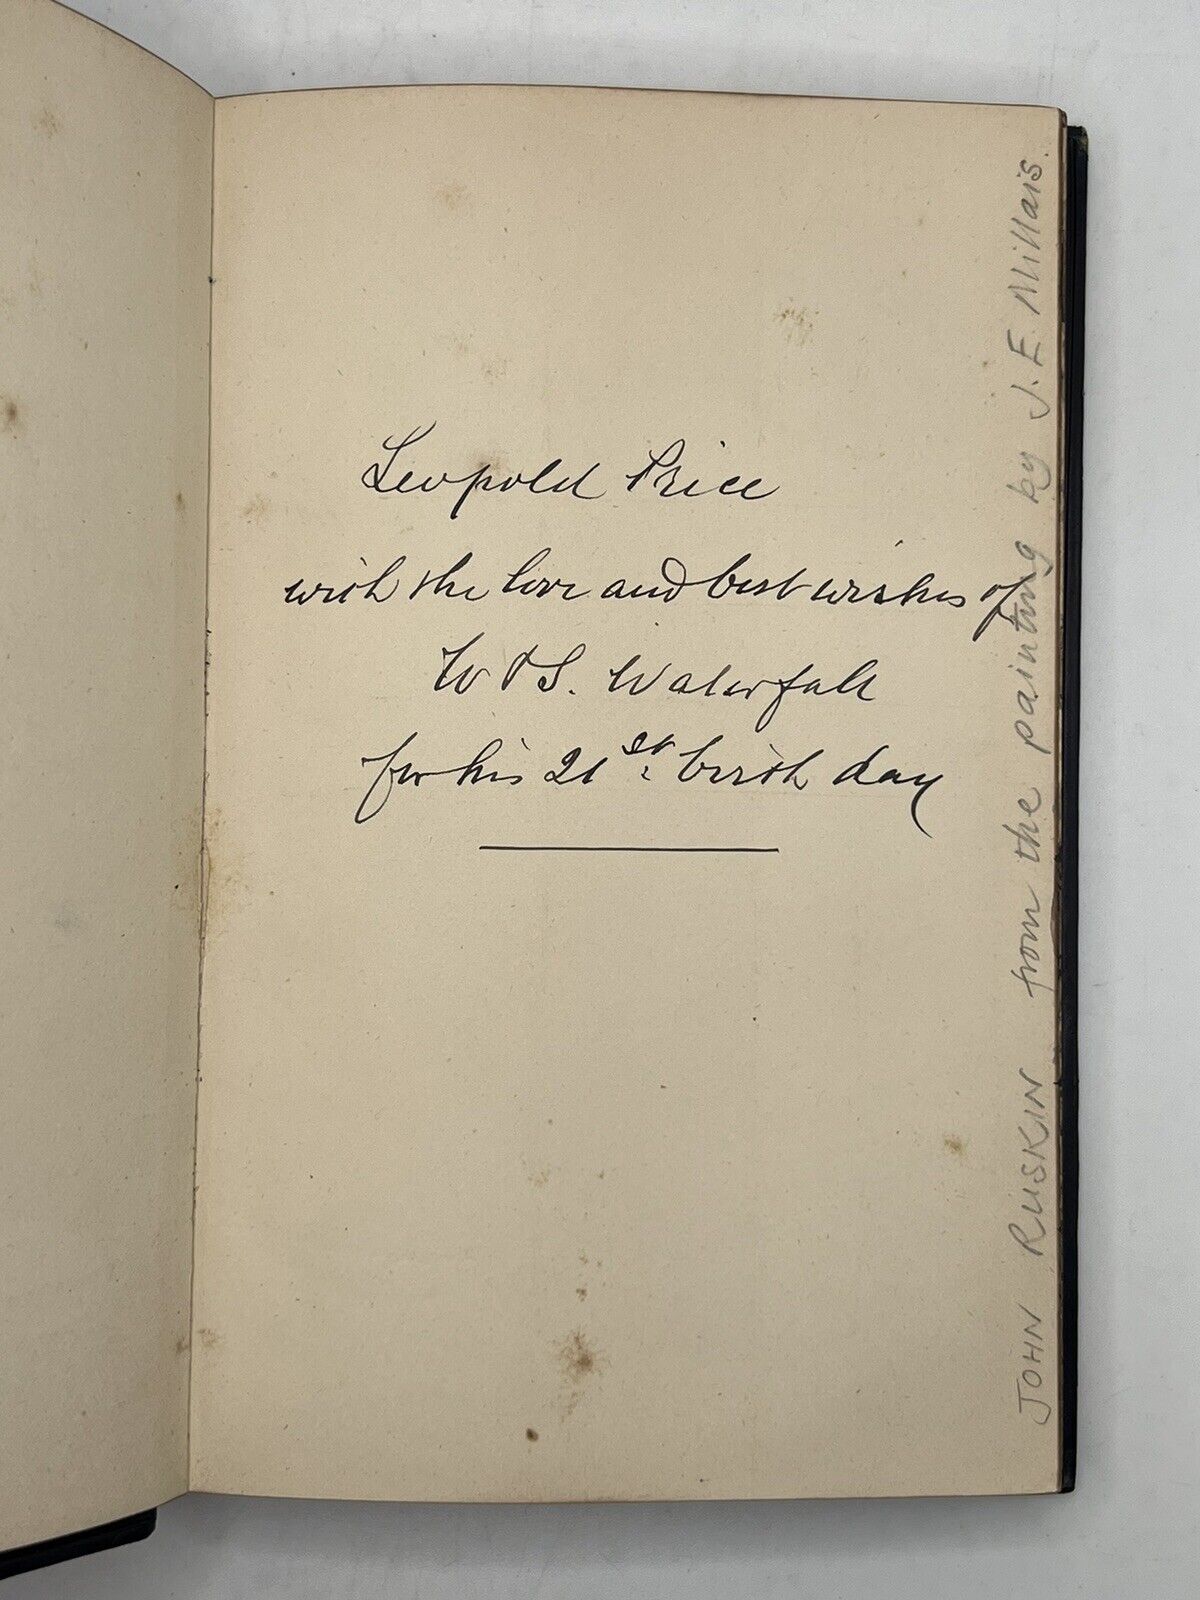 Leopold Price
with the love and best wishes of
W & S. Waterfall
for his 21st. birth day
JOHN RUSKIN from the painting by J. E. Millais.